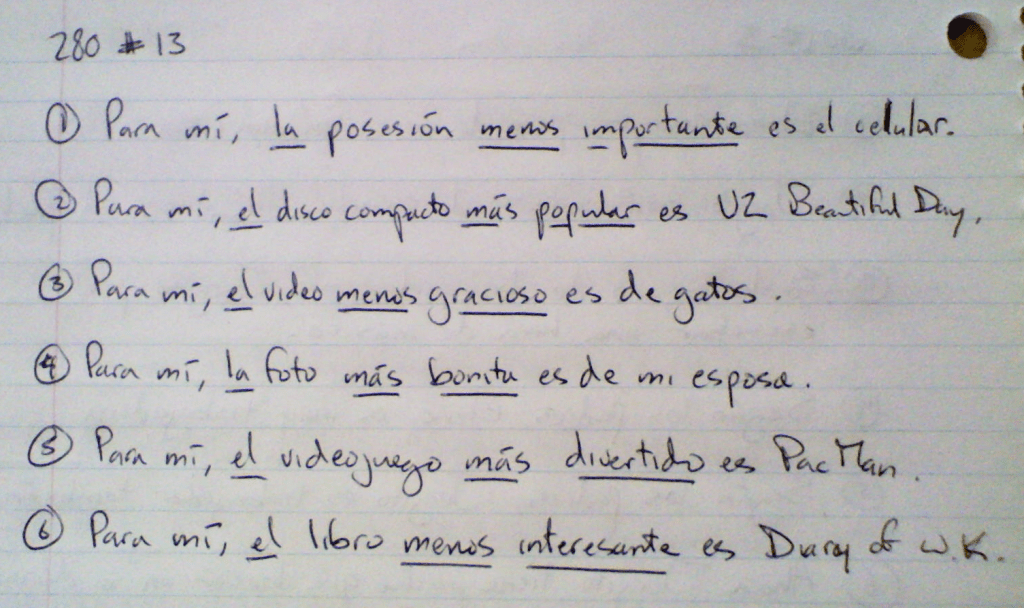 280 # 13
① Para mí, la posesión menos importante es el celular.
② Para mí, el disco compacto más popular es U2 Beautiful Day.
③ Para mí, el video menos gracioso es de gatos.
④ Para mí, la foto más bonita es de mi esposa.
⑤ Para mí, el videojuego más divertido es Pac Man.
⑥ Para mí, el libro menos interesante es Diary of W.K.